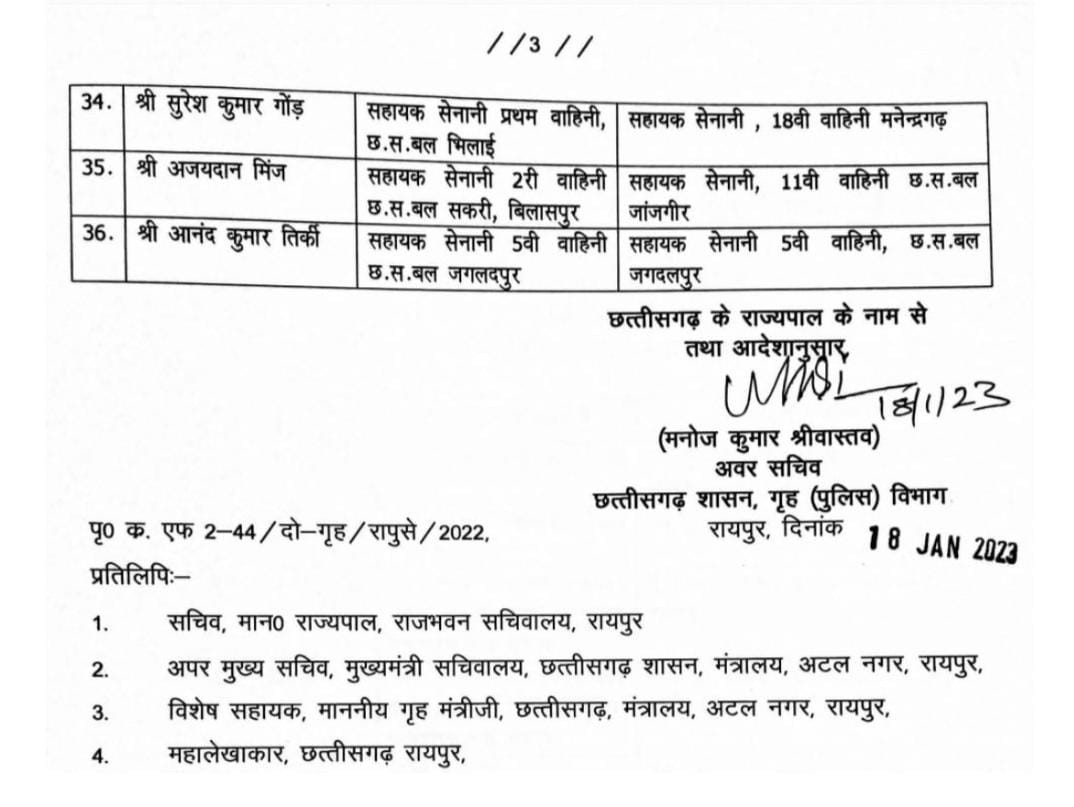 //3//
34. श्री सुरेश कुमार गोंड़ सहायक सेनानी प्रथम वाहिनी, सहायक सेनानी , 18वी वाहिनी मनेन्द्रगढ़
छ.स.बल भिलाई
35. श्री अजयदान मिंज सहायक सेनानी 2री वाहिनी सहायक सेनानी, 11वी वाहिनी छ.स.बल
छ.स.बल सकरी, बिलासपुर जांजगीर
36. श्री आनंद कुमार तिर्की सहायक सेनानी 5वी वाहिनी सहायक सेनानी 5वी वाहिनी, छ.स.बल
छ.स.बल जगलदपुर जगदलपुर
छत्तीसगढ़ के राज्यपाल के नाम से
तथा आदेशानुसार,
18/1/23
(मनोज कुमार श्रीवास्तव)
अवर सचिव
छत्तीसगढ़ शासन, गृह (पुलिस) विभाग
पृ0 क. एफ 2–44/दो–गृह/रापुसे/2022, रायपुर, दिनांक 18 JAN 2023
प्रतिलिपिः–
1. सचिव, मान0 राज्यपाल, राजभवन सचिवालय, रायपुर
2. अपर मुख्य सचिव, मुख्यमंत्री सचिवालय, छत्तीसगढ़ शासन, मंत्रालय, अटल नगर, रायपुर,
3. विशेष सहायक, माननीय गृह मंत्रीजी, छत्तीसगढ़, मंत्रालय, अटल नगर, रायपुर,
4. महालेखाकार, छत्तीसगढ़ रायपुर,